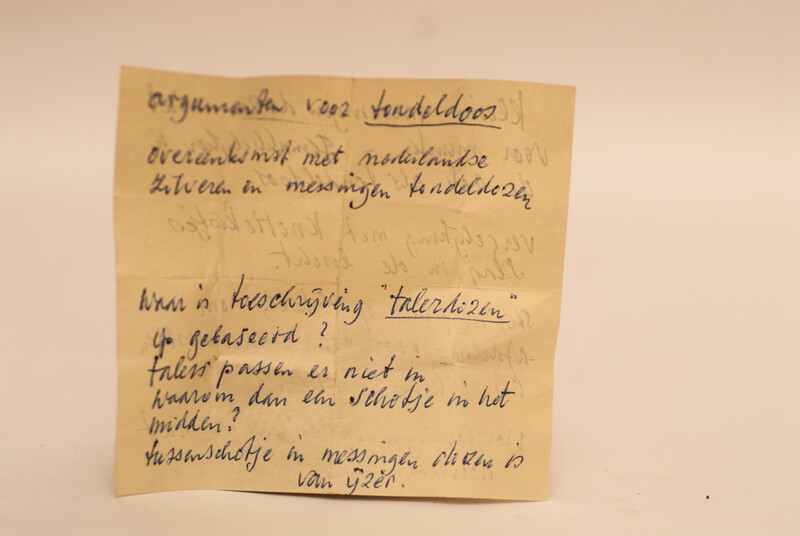 argumenten voor tondeldoos
overeenkomst met nederlandse
zilveren en messingen tondeldozen
waar is toeschrijving "talerdozen"
op gebaseerd?
talers passen er niet in
waarom dan een schotje in het
midden?
tussenschotje in messingen dozen is
van ijzer.
vergelijking met Knottekistjes
slag in de lucht.